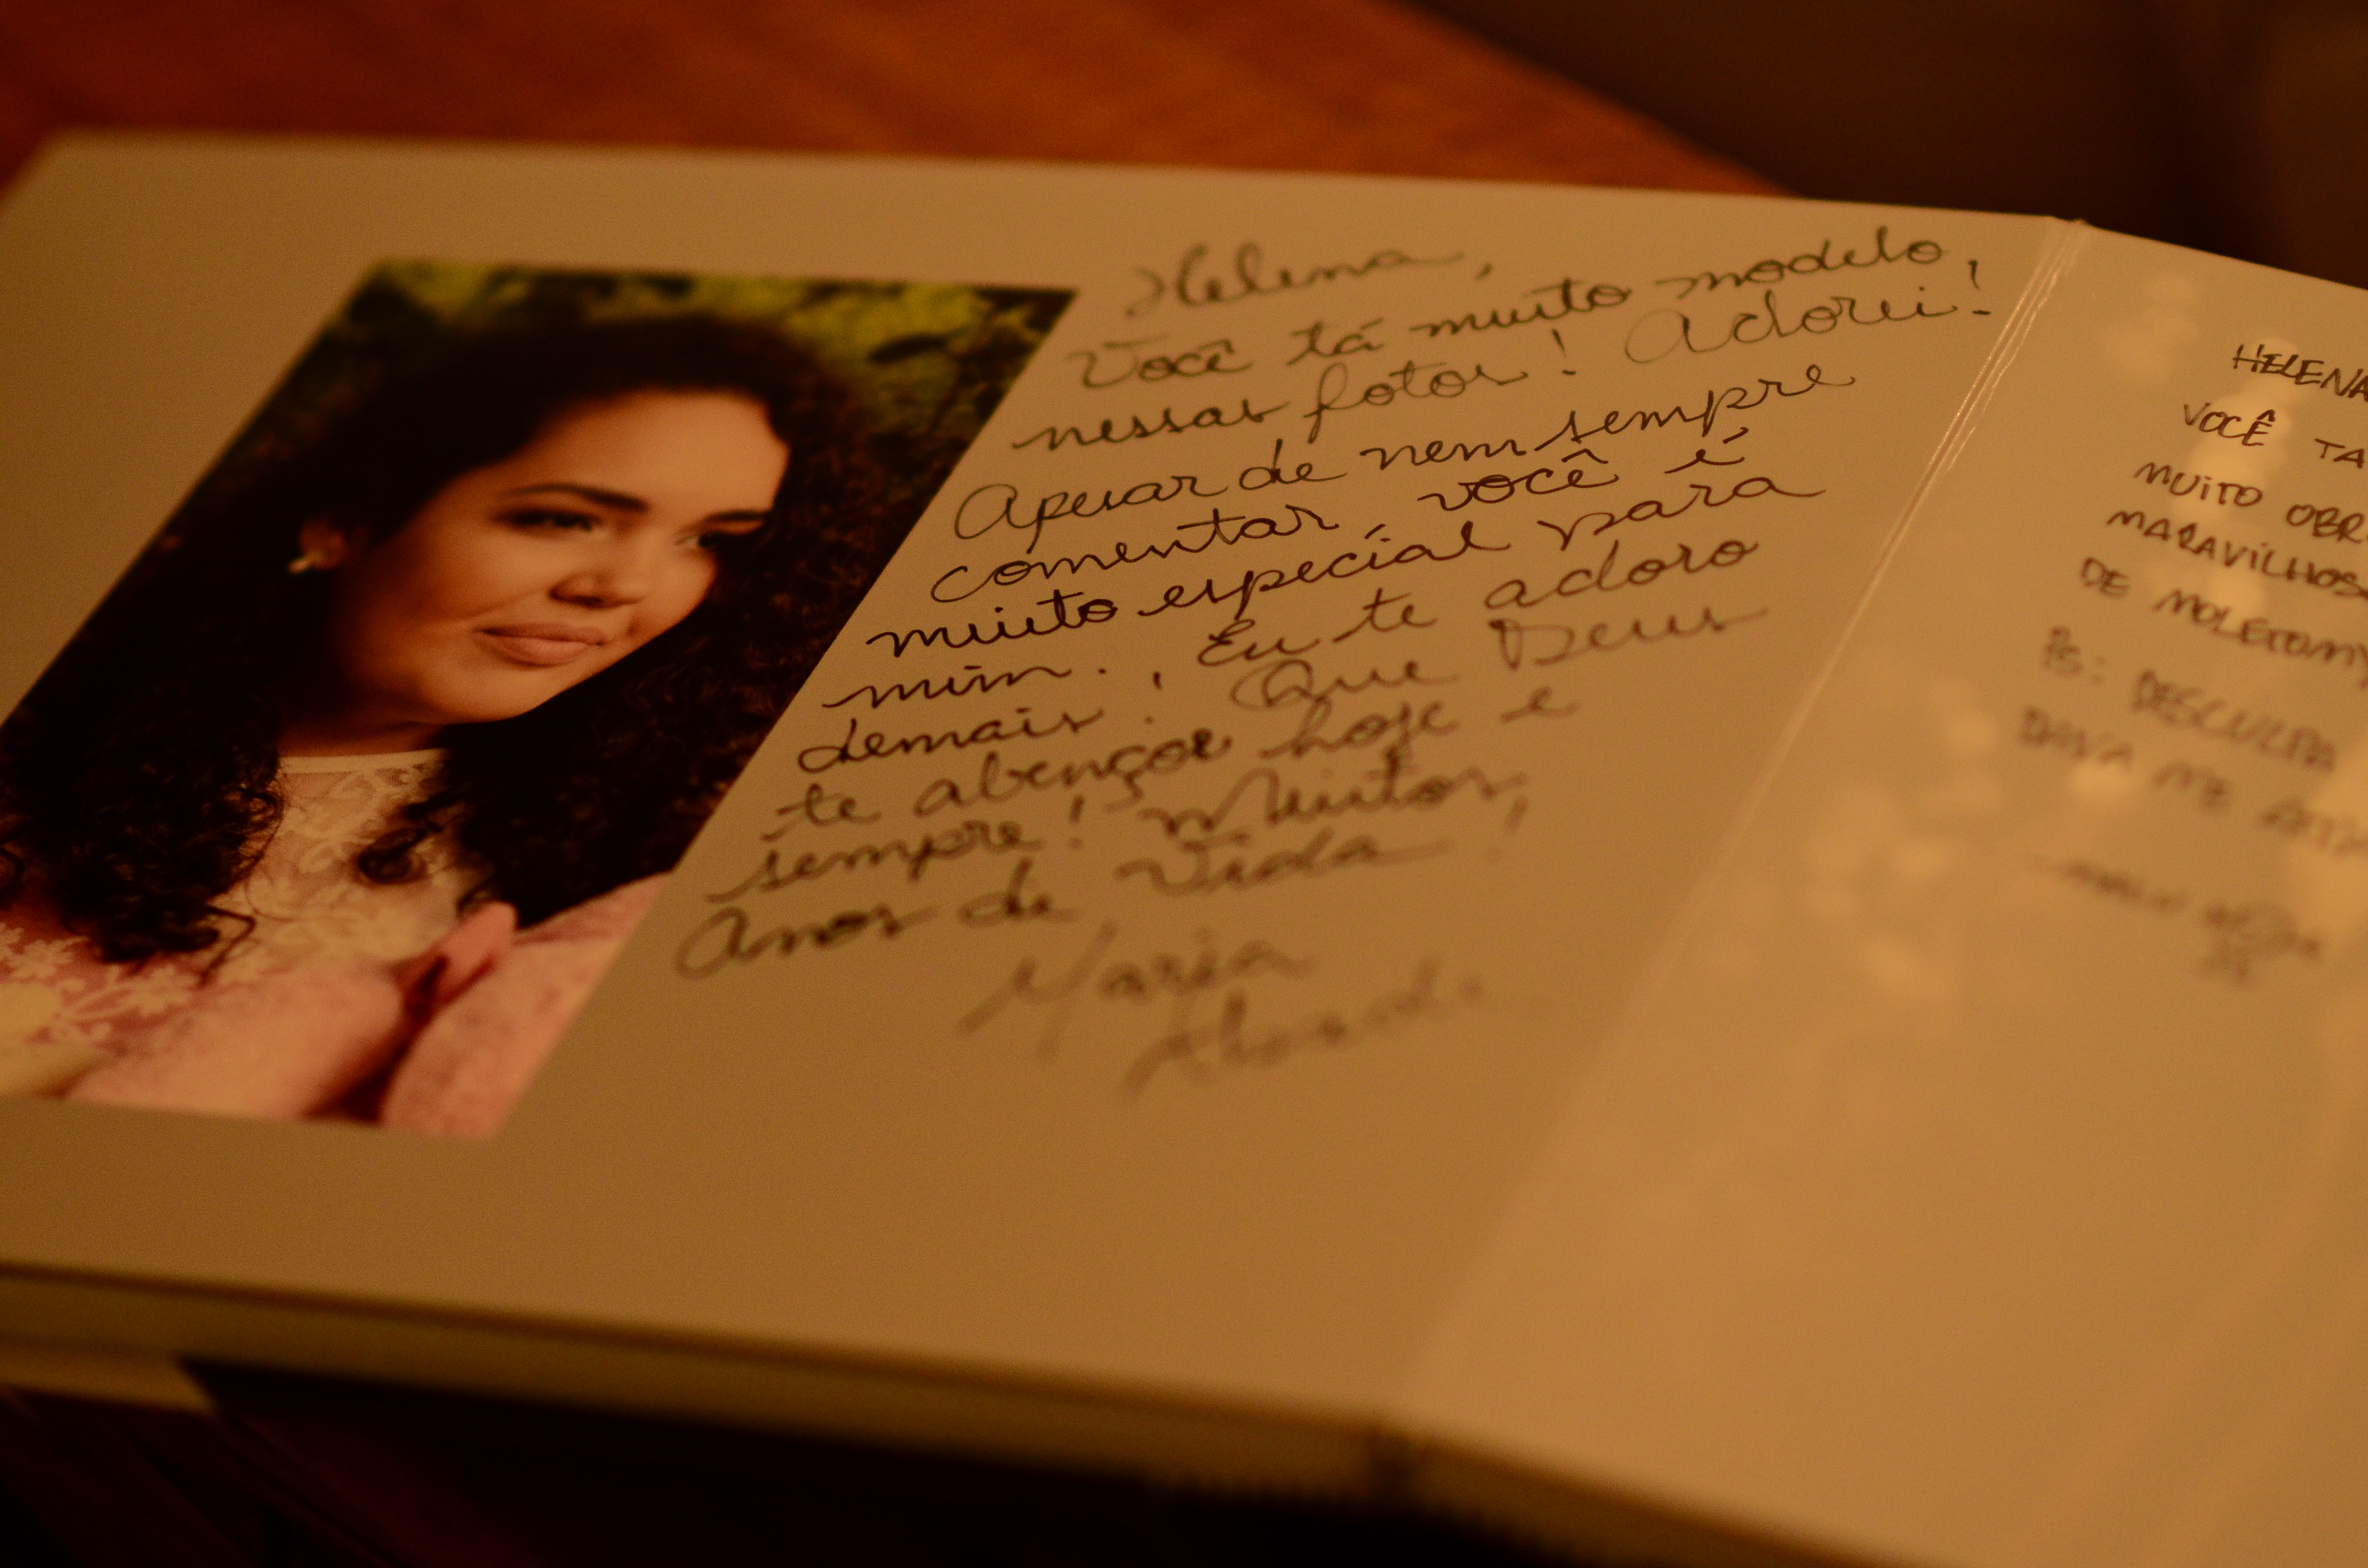 Helena,
Você tá muito modelo,
nessas fotos! Adorei!
Apesar de nem sempre
comentar, você é
muito especial para
mim. Eu te adoro
demais! Que Deus
te abençoe hoje e
sempre! Muitos
Anos de Vida!
Maria
HELENA
VOCÊ TA
MUITO OBR
MARAVILHOS
DE MOLETOM
PS: DESCULPA
ME